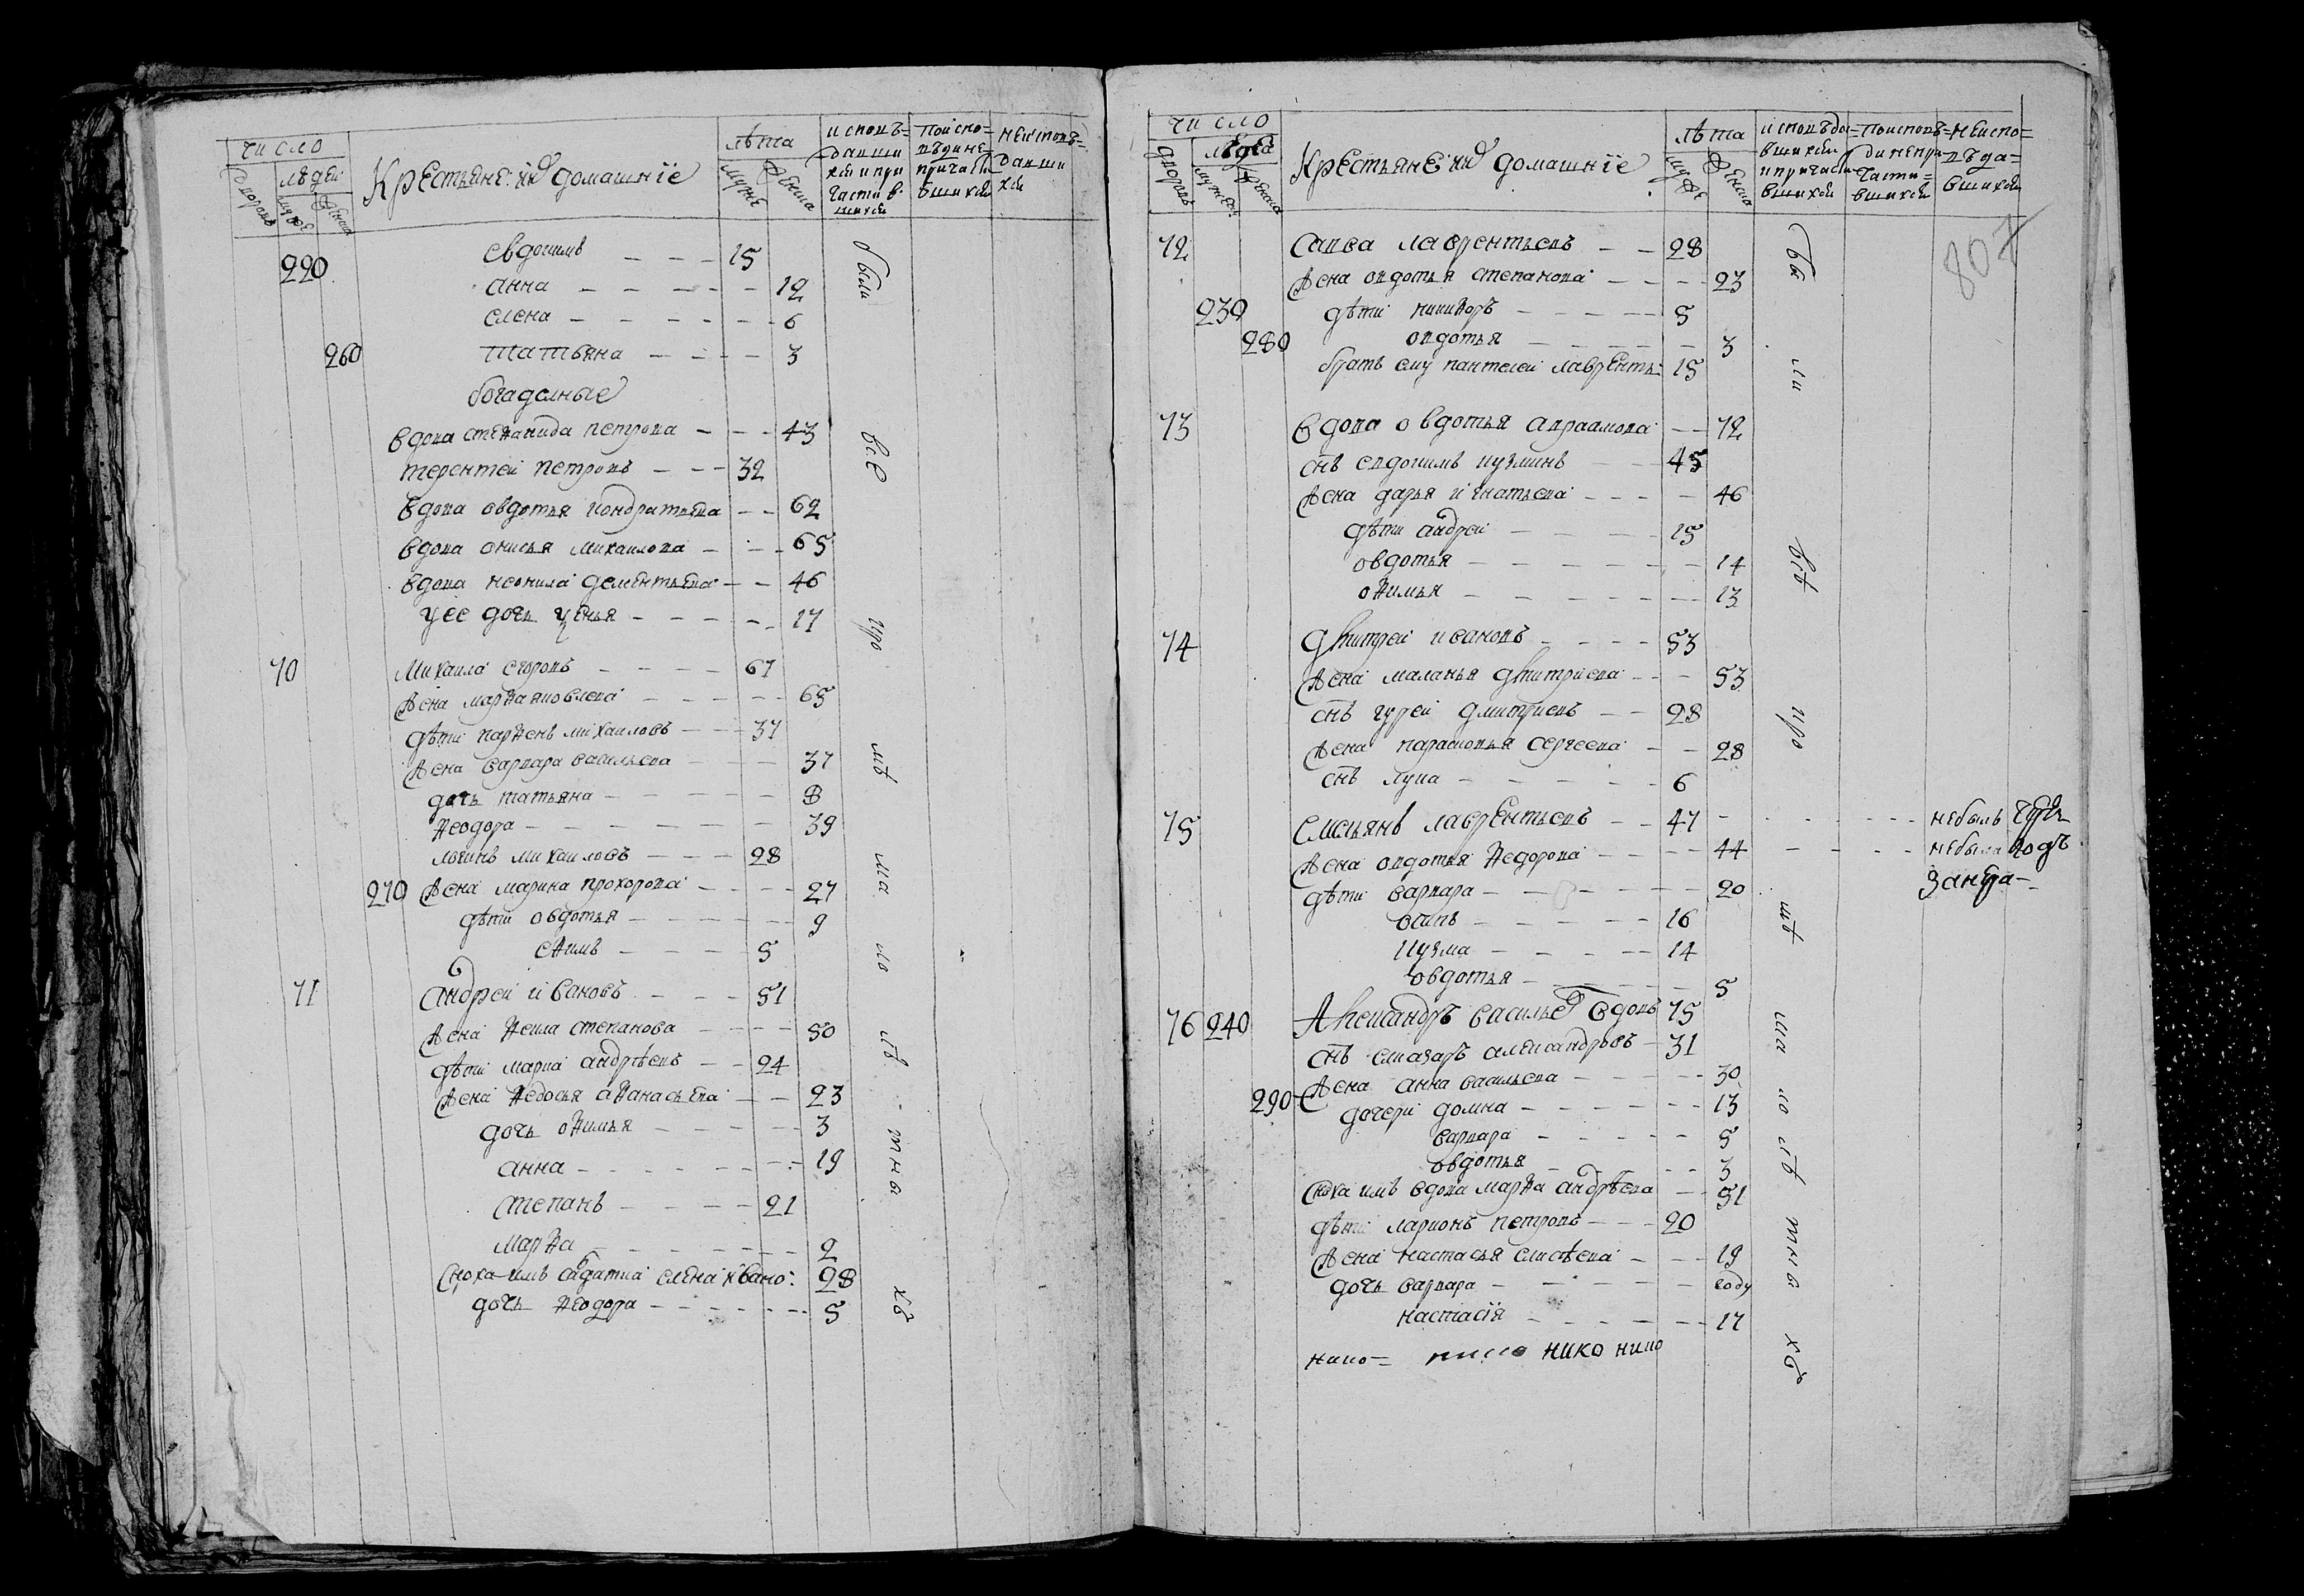 число
людей
дворовъ
муже
женска
Крестьяне и ихъ домашнїе
лѣта
муже
женска
исповѣ=
давши
хся и при
частив
шихся
поиспо=
вѣдине
причасти
вшихся
неисповѣ=
давши
хся
220 евдокимъ — — — 15
анна — — — — — 12
елена — — — — — 6
260 татьяна — — — — 3
богаделные
вдова степанида петрова — — — 43
терентей петровъ — — — 32
вдова овдотья кондратьева — — 62
вдова онисья михаилова — — — 65
вдова неонила дементьева — — 46
у ее дочь — — — — — 17
70 Михаила егоровъ — — — — 67
жена марѳа яковлева — — — — — 65
дѣти парѳенъ михаиловъ — — — 37
жена варвара васильева — — — — 37
дочь татьяна — — — — — 8
ѳеодора — — — — — — — 39
логинъ михаиловъ — — — 28
270 жена марина прохорова — — — — 27
дѣти овдотья — — — — — 9
еѳимъ — — — — 5
71 андреи ивановъ — — — 51
жена ѳекла степанова — — — — 50
дѣти марка андрѣевъ — — 24
жена ѳедосья аѳанасьева — — 23
дочь оѳимья — — — — — 3
анна — — — — — — — 19
степанъ — — — — 21
марѳа — — — — — — 2
сноха имъ салдатка елена ивано: 28
дочь ѳеодора — — — — — — 5
были
всѣ
кро
мѣ
ма
ло
лѣ
тны
хъ
число
людей
дворовъ
мужеи
женска
Крестьяне и ихъ домашнїе
лѣта
муже
женска
исповѣда=
вшихся
и причасти
вшихся
поисповѣ=
ди непри
части=
вшихся
неиспо=
вѣда=
вшихся
807
72 Савва лаврентьевъ — — 28
жена овдотья степанова — — — — 23
230 дѣти никиѳоръ — — — — — 5
280 овдотья — — — — — 3
братъ ему пантелеи лавренть: 15
73 вдова овдотья авраамова — — 72
снъ евдокимъ кузминъ — — 45
жена дарья игнатьева — — — — 46
дѣти андреи — — — — 15
овдотья — — — — — — 14
оѳимья — — — — — — 13
74 дмитреи ивановъ — — — — 53
жена маланья дмитриева — — — 53
снъ гурей дмитриевъ — — 28
жена парасковья сергеева — — 28
снъ лука — — — — — 6
75 Емельянъ лаврентьевъ — — 47 — — — — — — небылъ
жена овдотья ѳедорова — — — — 44 — — — — небыла годъ
дѣти варвара — — — — — — 20
осипъ — — — — — 16
кузма — — — — — 14
овдотья — — — — — 5
76 240 Александръ василье вдовъ 75
снъ елиазаръ александровъ — 31
жена анна васильева — — — — — 30
290 дочери домна — — — — — — 13
варвара — — — — — 5
овдотья — — — 3
сноха имъ вдова марѳа андрѣева — — 51
дѣти ларионъ петровъ — — — 20
жена настасья елисѣева — — — 19
дочь варвара — — — — — году
настасїя — — — — — 17
нико = нико нико
бы
ли
всѣ
кро
мѣ
ма
ло
лѣ
тны
хъ